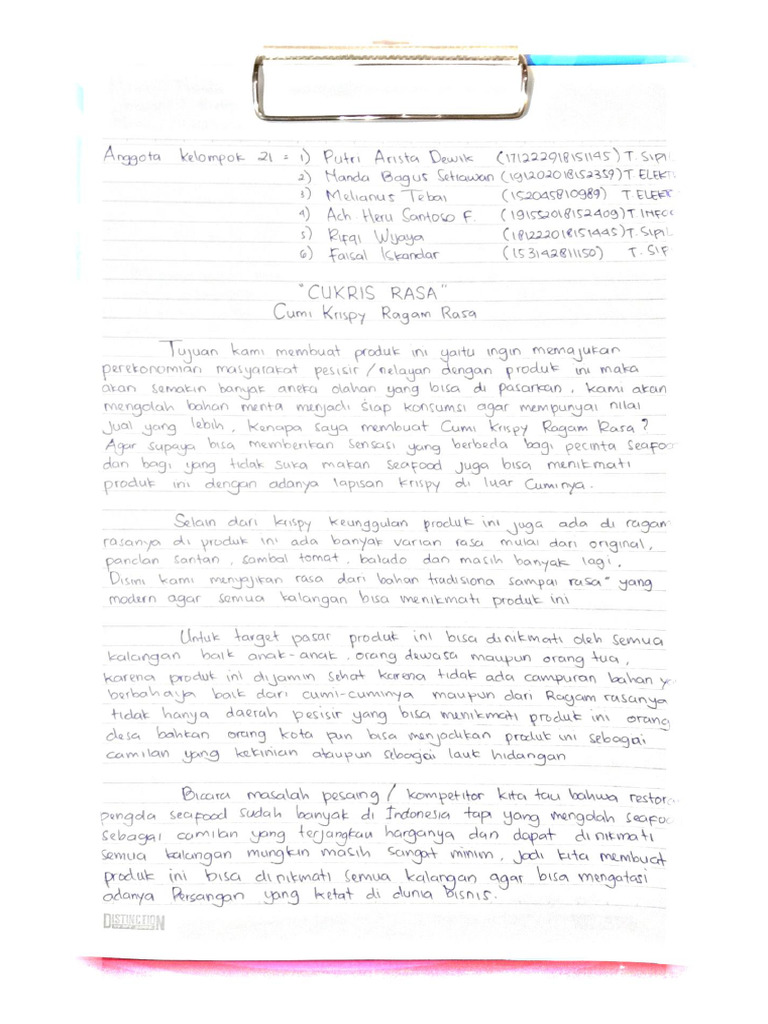 Anggota Kelompok 21 = 1) Putri Arista Dewik (171222918151145) T. SIPIL
2) Nanda Bagus Setiawan (191202018152359) T ELEKT
3) Melianus Tebai (152045810989) T. ELEKT
4) Ach. Heru Santoso F. (191552018152409) T INFO
5) Rifqi Wijaya (181222018151445) T. SIPIL
6) Faisal Iskandar (153142811150) T. SIP
"CUKRIS RASA"
Cumi Krispy Ragam Rasa
Tujuan kami membuat produk ini yaitu ingin memajukan
perekonomian masyarakat pesisir / nelayan dengan produk ini maka
akan semakin banyak aneka olahan yang bisa di pasarkan, kami akan
mengolah bahan menta menjadi siap konsumsi agar mempunyai nilai
jual yang lebih, kenapa saya membuat Cumi Krispy Ragam Rasa?
Agar supaya bisa memberikan sensasi yang berbeda bagi pecinta seafoo
dan bagi yang tidak suka makan seafood juga bisa menikmati
produk ini dengan adanya lapisan krispy di luar Cuminya.
Selain dari krispy keunggulan produk ini juga ada di ragam
rasanya di produk ini ada banyak varian rasa mulai dari original,
pandan santan, sambal tomat, balado dan masih banyak lagi.
Disini kami menyajikan rasa dari bahan tradisiona sampai rasa" yang
modern agar semua kalangan bisa menikmati produk ini
Untuk target pasar produk ini bisa dinikmati oleh semua
kalangan baik anak-anak, orang dewasa maupun orang tua,
karena produk ini dijamin sehat karena tidak ada campuran bahan y
berbahaya baik dari cumi-cuminya maupun dari Ragam rasanya
tidak hanya daerah pesisir yang bisa menikmati produk ini orang
desa bahkan orang kota pun bisa menjadikan produk ini sebagai
camilan yang kekinian ataupun sebagai lauk hidangan
Bicara masalah pesaing / kompetitor kita tau bahwa restora
pengola seafood sudah banyak di Indonesia tapi yang mengolah seafoo
sebagai camilan yang terjangkau harganya dan dapat dinikmati
semua kalangan mungkin masih sangat minim, jadi kita membuat
produk ini bisa dinikmati semua kalangan agar bisa mengatasi
adanya Persangan yang ketat di dunia Bisnis.
DISTINCTION